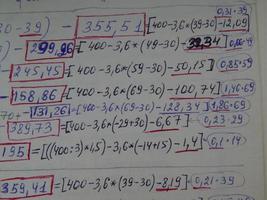 0,31·39
30-39) - 355,51=[400-3,6*(39-30)-12,09
- 299,96=[400-3,6*(49-30)-32,34] 0,66·49
- 245,45=[400-3,6*(59-30)-50,15] 0,85·59
- 158,86=[400-3,6*(69-30)-100,74] 1,46·69
70+ -131,26=[400-3,6*(69-30)-128,34] 1,86·69
389,73=[400-3,6*(-29+30)-6,67] 0,23·29
195=[((400:3)*1,5)-3,6*(-14+15)-1,4] 0,1·14
359,41=[400-3,6*(39-30)-8,19] 0,21·39